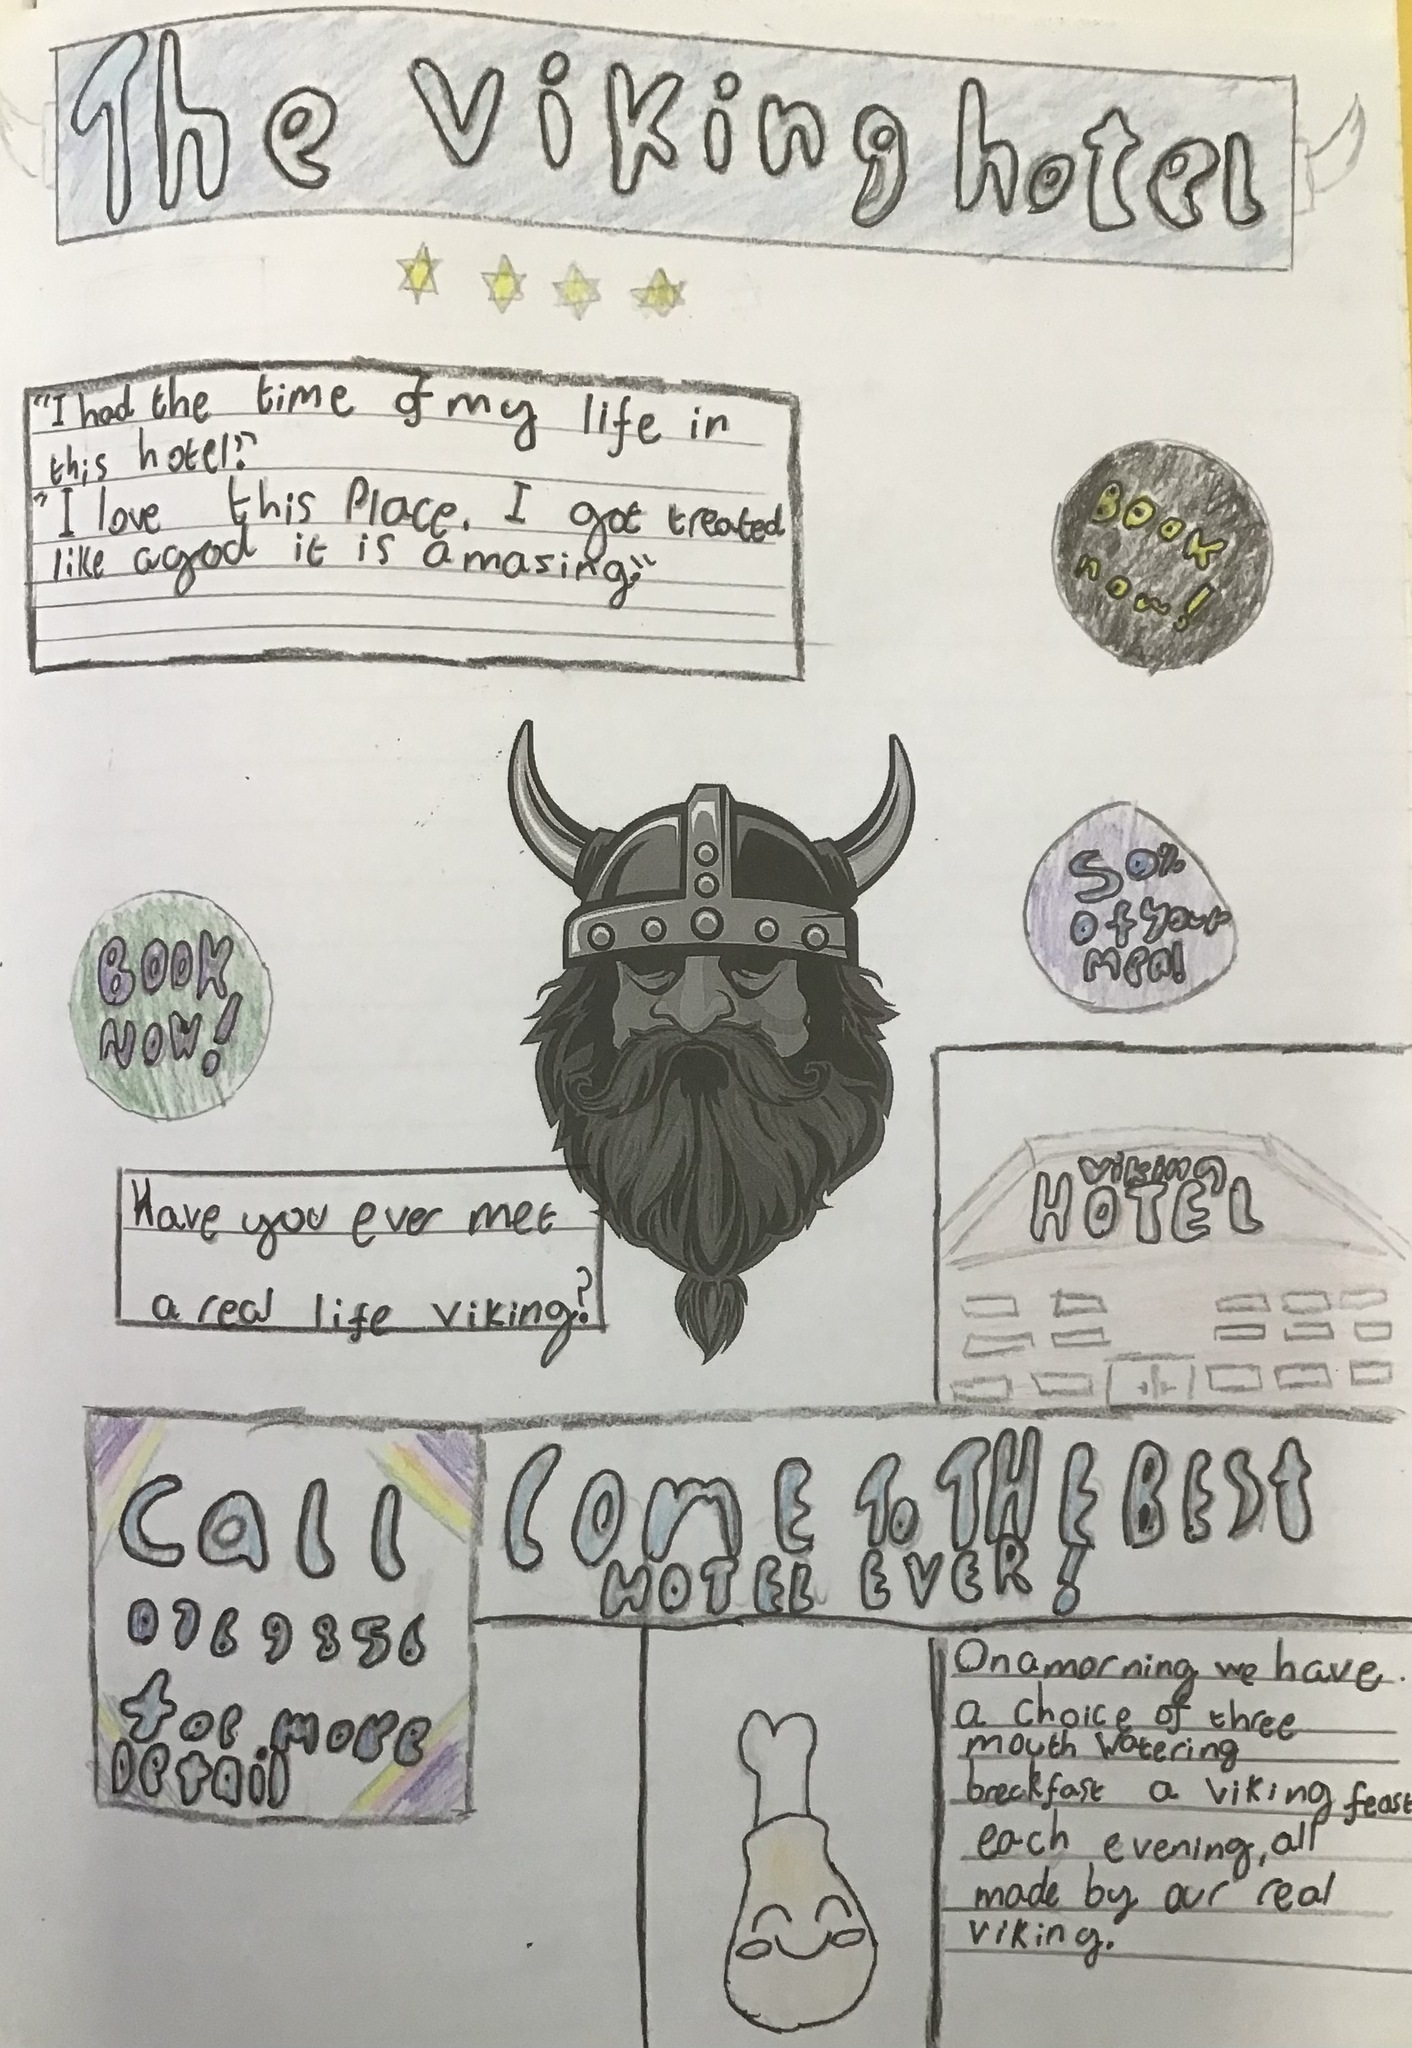 The Viking hotel
"I had the time of my life in
this hotel."
"I love this Place. I got treated
like a god it is amasing."
BOOK
now!
50%
of your
meal
BOOK
NOW!
Have you ever met
a real life viking?
viking
HOTEL
Call
0769856
for more
Detail
COME TO THE BEST
HOTEL EVER!
On a morning we have
a choice of three
mouth watering
breakfast a viking feast
each evening, all
made by our real
viking.